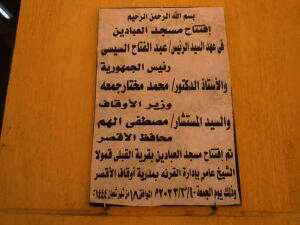 بسم الله الرحمن الرحيم
إفتتاح مسجد العبادين
في عهد السيد الرئيس/ عبد الفتاح السيسى
رئيس الجمهورية
والأستاذ الدكتور/ محمد مختار جمعه
وزير الأوقاف
والسيد المستشار/ مصطفى الهم
محافظ الأقصر
تم إفتتاح مسجد العبادين بقرية القبلى قمولا
الشيخ عامر بإدارة القرنه بمديرية أوقاف الأقصر
وذلك يوم الجمعة ٢٠٢٣/٣/١٠ الموافق ١٨ من شهر شعبان ١٤٤٤